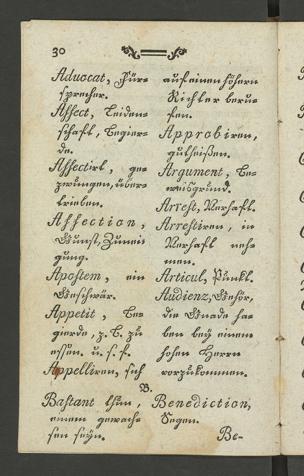 30
Advocat, Für-
sprecher.
Affect, Leiden-
schaft, Begier-
de.
Affectirt, ge-
zwungen, über-
trieben.
Affection,
Gunst, Zunei-
gung.
Apostem, ein
Geschwär.
Appetit, Be-
gierde, z. B. zu
essen. u. s. f.
Appelliren, sich
auf einen höhern
Richter beru-
fen.
Approbiren,
gutheißen.
Argument, Be-
weisgrund.
Arrest, Verhaft.
Arrestiren, in
Verhaft neh-
men.
Articul, Punkt.
Audienz, Gehör,
die Gnade ha-
ben bey einem
hohen Herrn
vorzukommen.
B.
Bastant thun,
einem gewach-
sen seyn.
Benediction,
Segen.
Be-